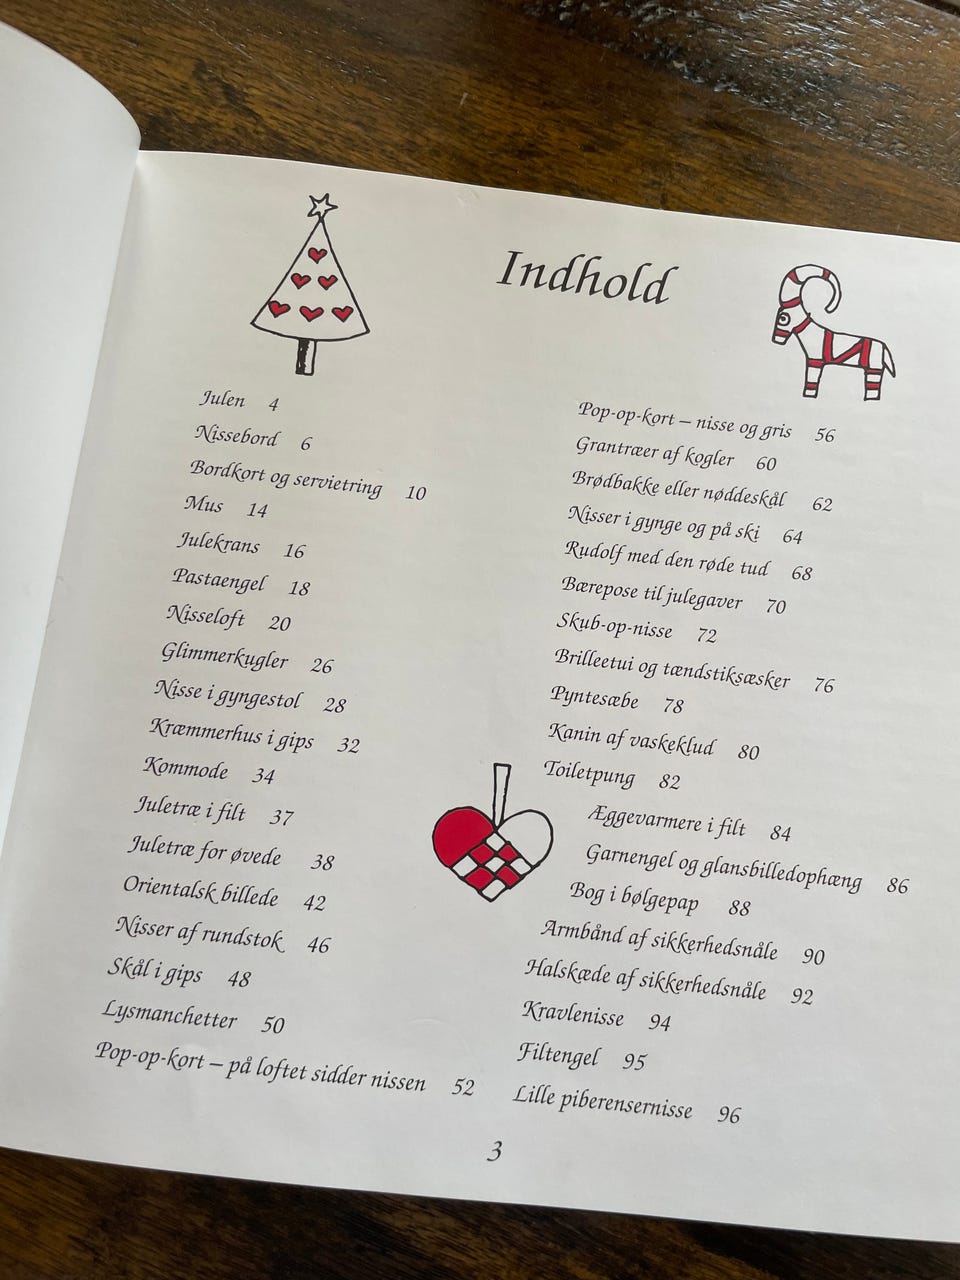 Indhold
Julen 4
Nissebord 6
Bordkort og servietring 10
Mus 14
Julekrans 16
Pastaengel 18
Nisseloft 20
Glimmerkugler 26
Nisse i gyngestol 28
Kræmmerhus i gips 32
Kommode 34
Juletræ i filt 37
Juletræ for øvede 38
Orientalsk billede 42
Nisser af rundstok 46
Skål i gips 48
Lysmanchetter 50
Pop-op-kort – på loftet sidder nissen 52
Pop-op-kort – nisse og gris 56
Grantræer af kogler 60
Brødbakke eller nøddeskål 62
Nisser i gynge og på ski 64
Rudolf med den røde tud 68
Bærepose til julegaver 70
Skub-op-nisse 72
Brilleetui og tændstiksæsker 76
Pyntesæbe 78
Kanin af vaskeklud 80
Toiletpung 82
Æggevarmere i filt 84
Garnengel og glansbilledophæng 86
Bog i bølgepap 88
Armbånd af sikkerhedsnåle 90
Halskæde af sikkerhedsnåle 92
Kravlenisse 94
Filtengel 95
Lille piberensernisse 96
3